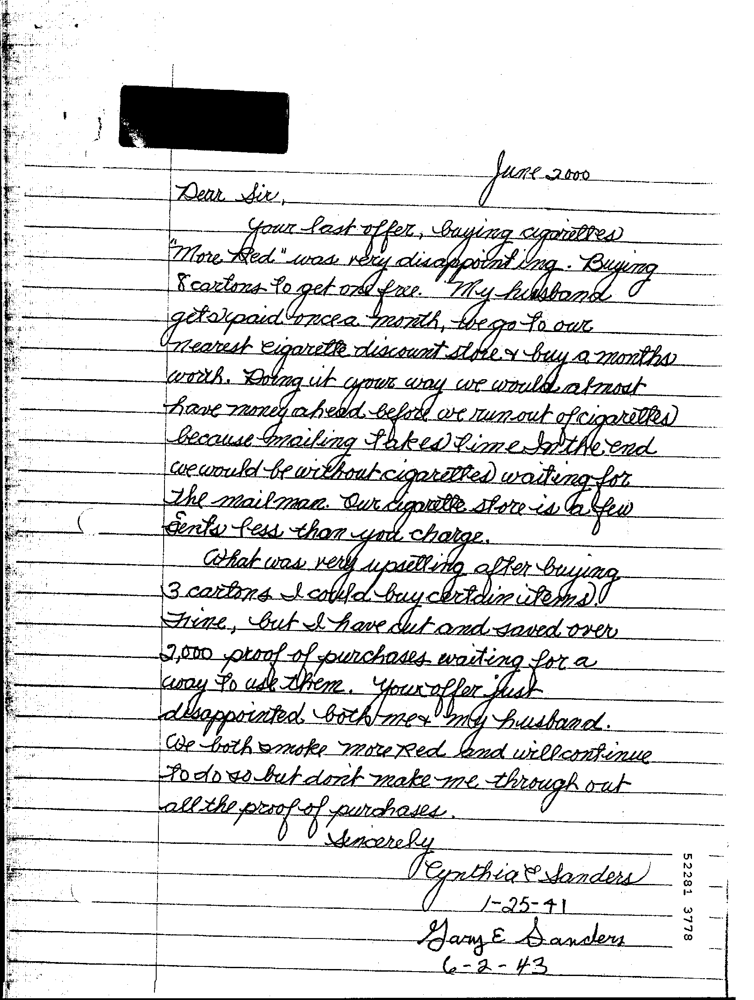 June 2000
Dear Sir,
Your last offer, buying cigarettes
"More Red" was very disappointing. Buying
8 cartons to get one free. My husband
gets paid once a month, we go to our
nearest cigarette discount store & buy a months
worth. Doing it your way we would almost
have money ahead before we run out of cigarettes
because mailing takes time. In the end
we would be without cigarettes waiting for
the mailman. Our cigarette store is a few
cents less than you charge.
What was very upsetting after buying
3 cartons I could buy certain items.
Fine, but I have cut and saved over
2,000 proof of purchases waiting for a
way to use them. Your offer just
disappointed both me & my husband.
We both smoke more Red and will continue
to do so but don't make me through out
all the proof of purchases.
Sincerely
Cynthia E Sanders
1-25-41
Gary E Sanders
6-2-43
52281 3778